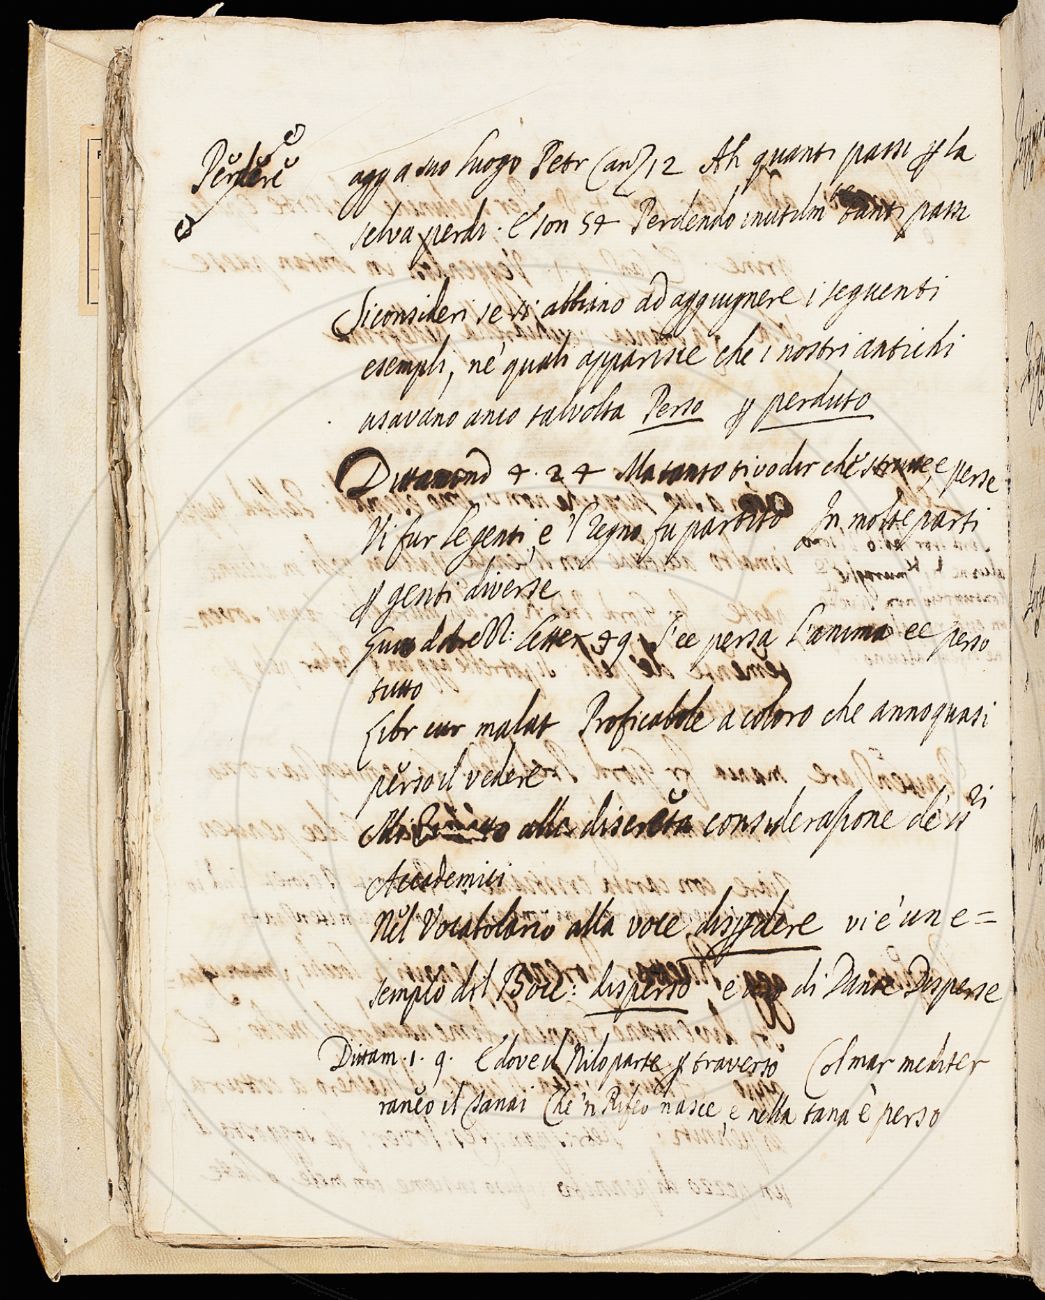 Perdere
agg a suo luogo Petr Canz 12 Ah quanti passi p la
selva perdi. E son 54 Perdendo inutilm tanti passi
Si consideri se si abbino ad aggiugnere i seguenti
esempli, ne' quali apparisce che i nostri antichi
usavano anco talvolta Perso p perduto
Dittamond 4. 24 Ma tanto ti vo dir che strutte, e perse
Vi fur le genti, e 'l Regno fu partito In molte parti
p genti diverse
Guitt Letter 49 S'ee persa l'anima ee perso
tutto
Libr cur malat Proficabole a coloro che anno quasi
perso il vedere
Mi alla discreta considerazione de' SSri
Accademici
Nel Vocabolario alla voce dispdere vi è un e=
semplo del Bocc: disperso e di Dante Disperse
Dittam. 1. 9. E dove il Nilo parte p traverso Col mar mediter
raneo il Tanai Che 'n Rifeo nasce, e nella tana è perso